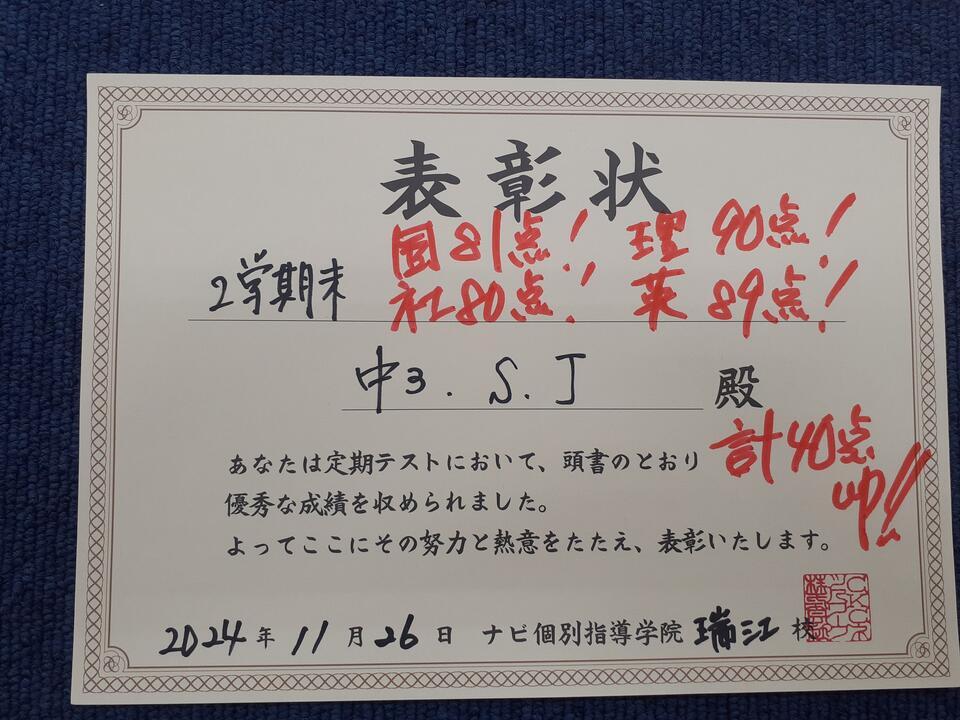 表彰状
国81点! 理90点!
2学期末 社80点!英89点!
中3. S.J 殿
計40点
up!!
あなたは定期テストにおいて、頭書のとおり
優秀な成績を収められました。
よってここにその努力と熱意をたたえ、表彰いたします。
2024年11月26日 ナビ個別指導学院 瑞江校